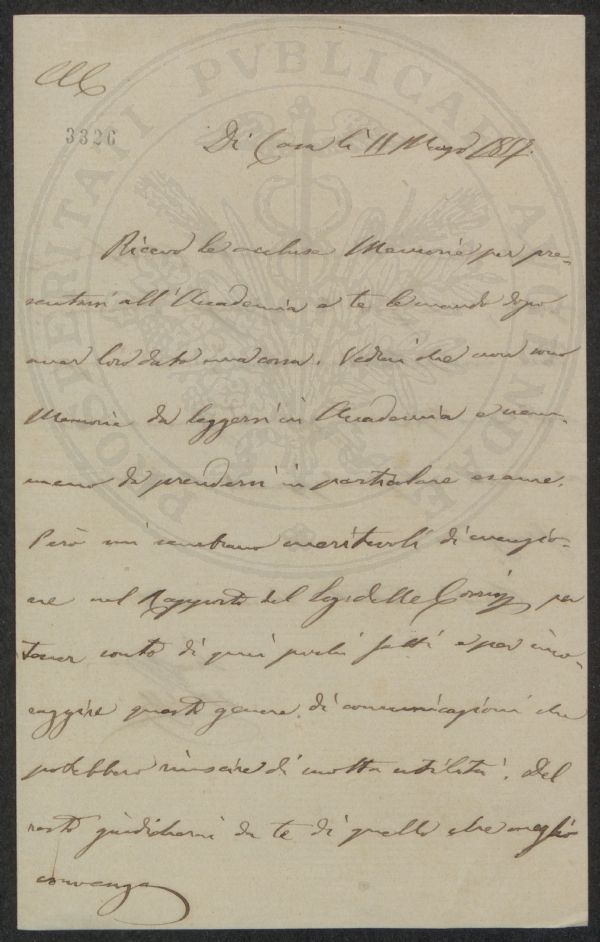 3326
Di Casa li 11 Maggio 1857.
Ricevo le accluse Memorie per pre-
sentarsi all'Accademia e te le mando dopo
aver loro dato una corsa. Vedrai che non sono
Memorie da leggersi in Accademia e nem-
meno da prendersi in particolare esame.
Però mi sembrano meritevoli di menzio-
ne nel Rapporto del Seg: delle Corrisp per
tener conto di quei pochi fatti e per inco-
raggire questo genere di comunicazioni che
potebbero riuscire di molta utilità. Del
resto giudicherai da te di quello che meglio
convenga
PVBLICAE
POSTERITATI
PROSPERITATI